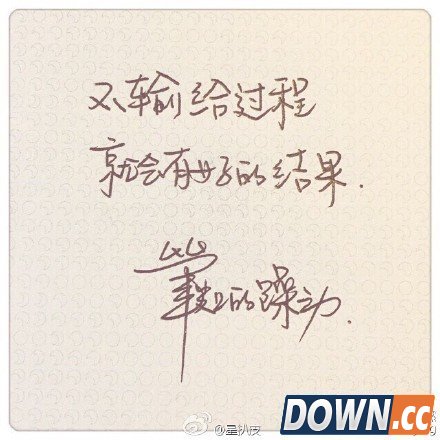 不输给过程
就会有好的结果.
的躁动.
@星扒皮
DOWN.cc